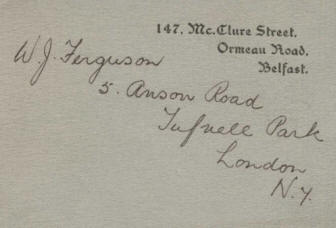 147, Mc.Clure Street.
Ormeau Road.
Belfast.
W. J. Ferguson
5. Anson Road
Tufnell Park
London
N.7.